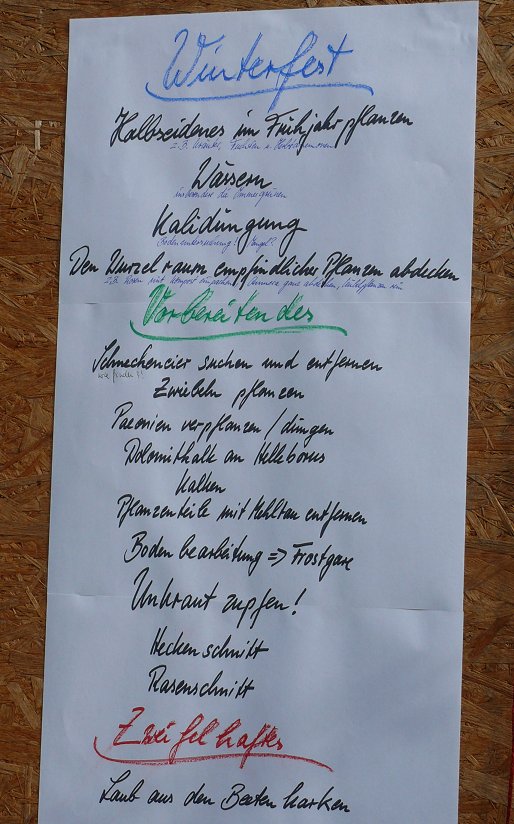 Winterfest
Halbseidenes im Frühjahr pflanzen
z.B. Kräuter, Fuchsien u.
Wässern
insbesondere die Immergrünen
Kalidüngung
Bodenuntersuchung! Mangel?
Den Wurzelraum empfindlicher Pflanzen abdecken
z.B. Rosen mit Kompost
Vorbereitendes
Schneckeneier suchen und entfernen
Zwiebeln pflanzen
Paeonien verpflanzen / düngen
Dolomitkalk an Helleborus
Kalken
Pflanzenteile mit Mehltau entfernen
Bodenbearbeitung => Frostgare
Unkraut zupfen!
Heckenschnitt
Rasenschnitt
Zweifelhaftes
Laub aus den Beeten harken